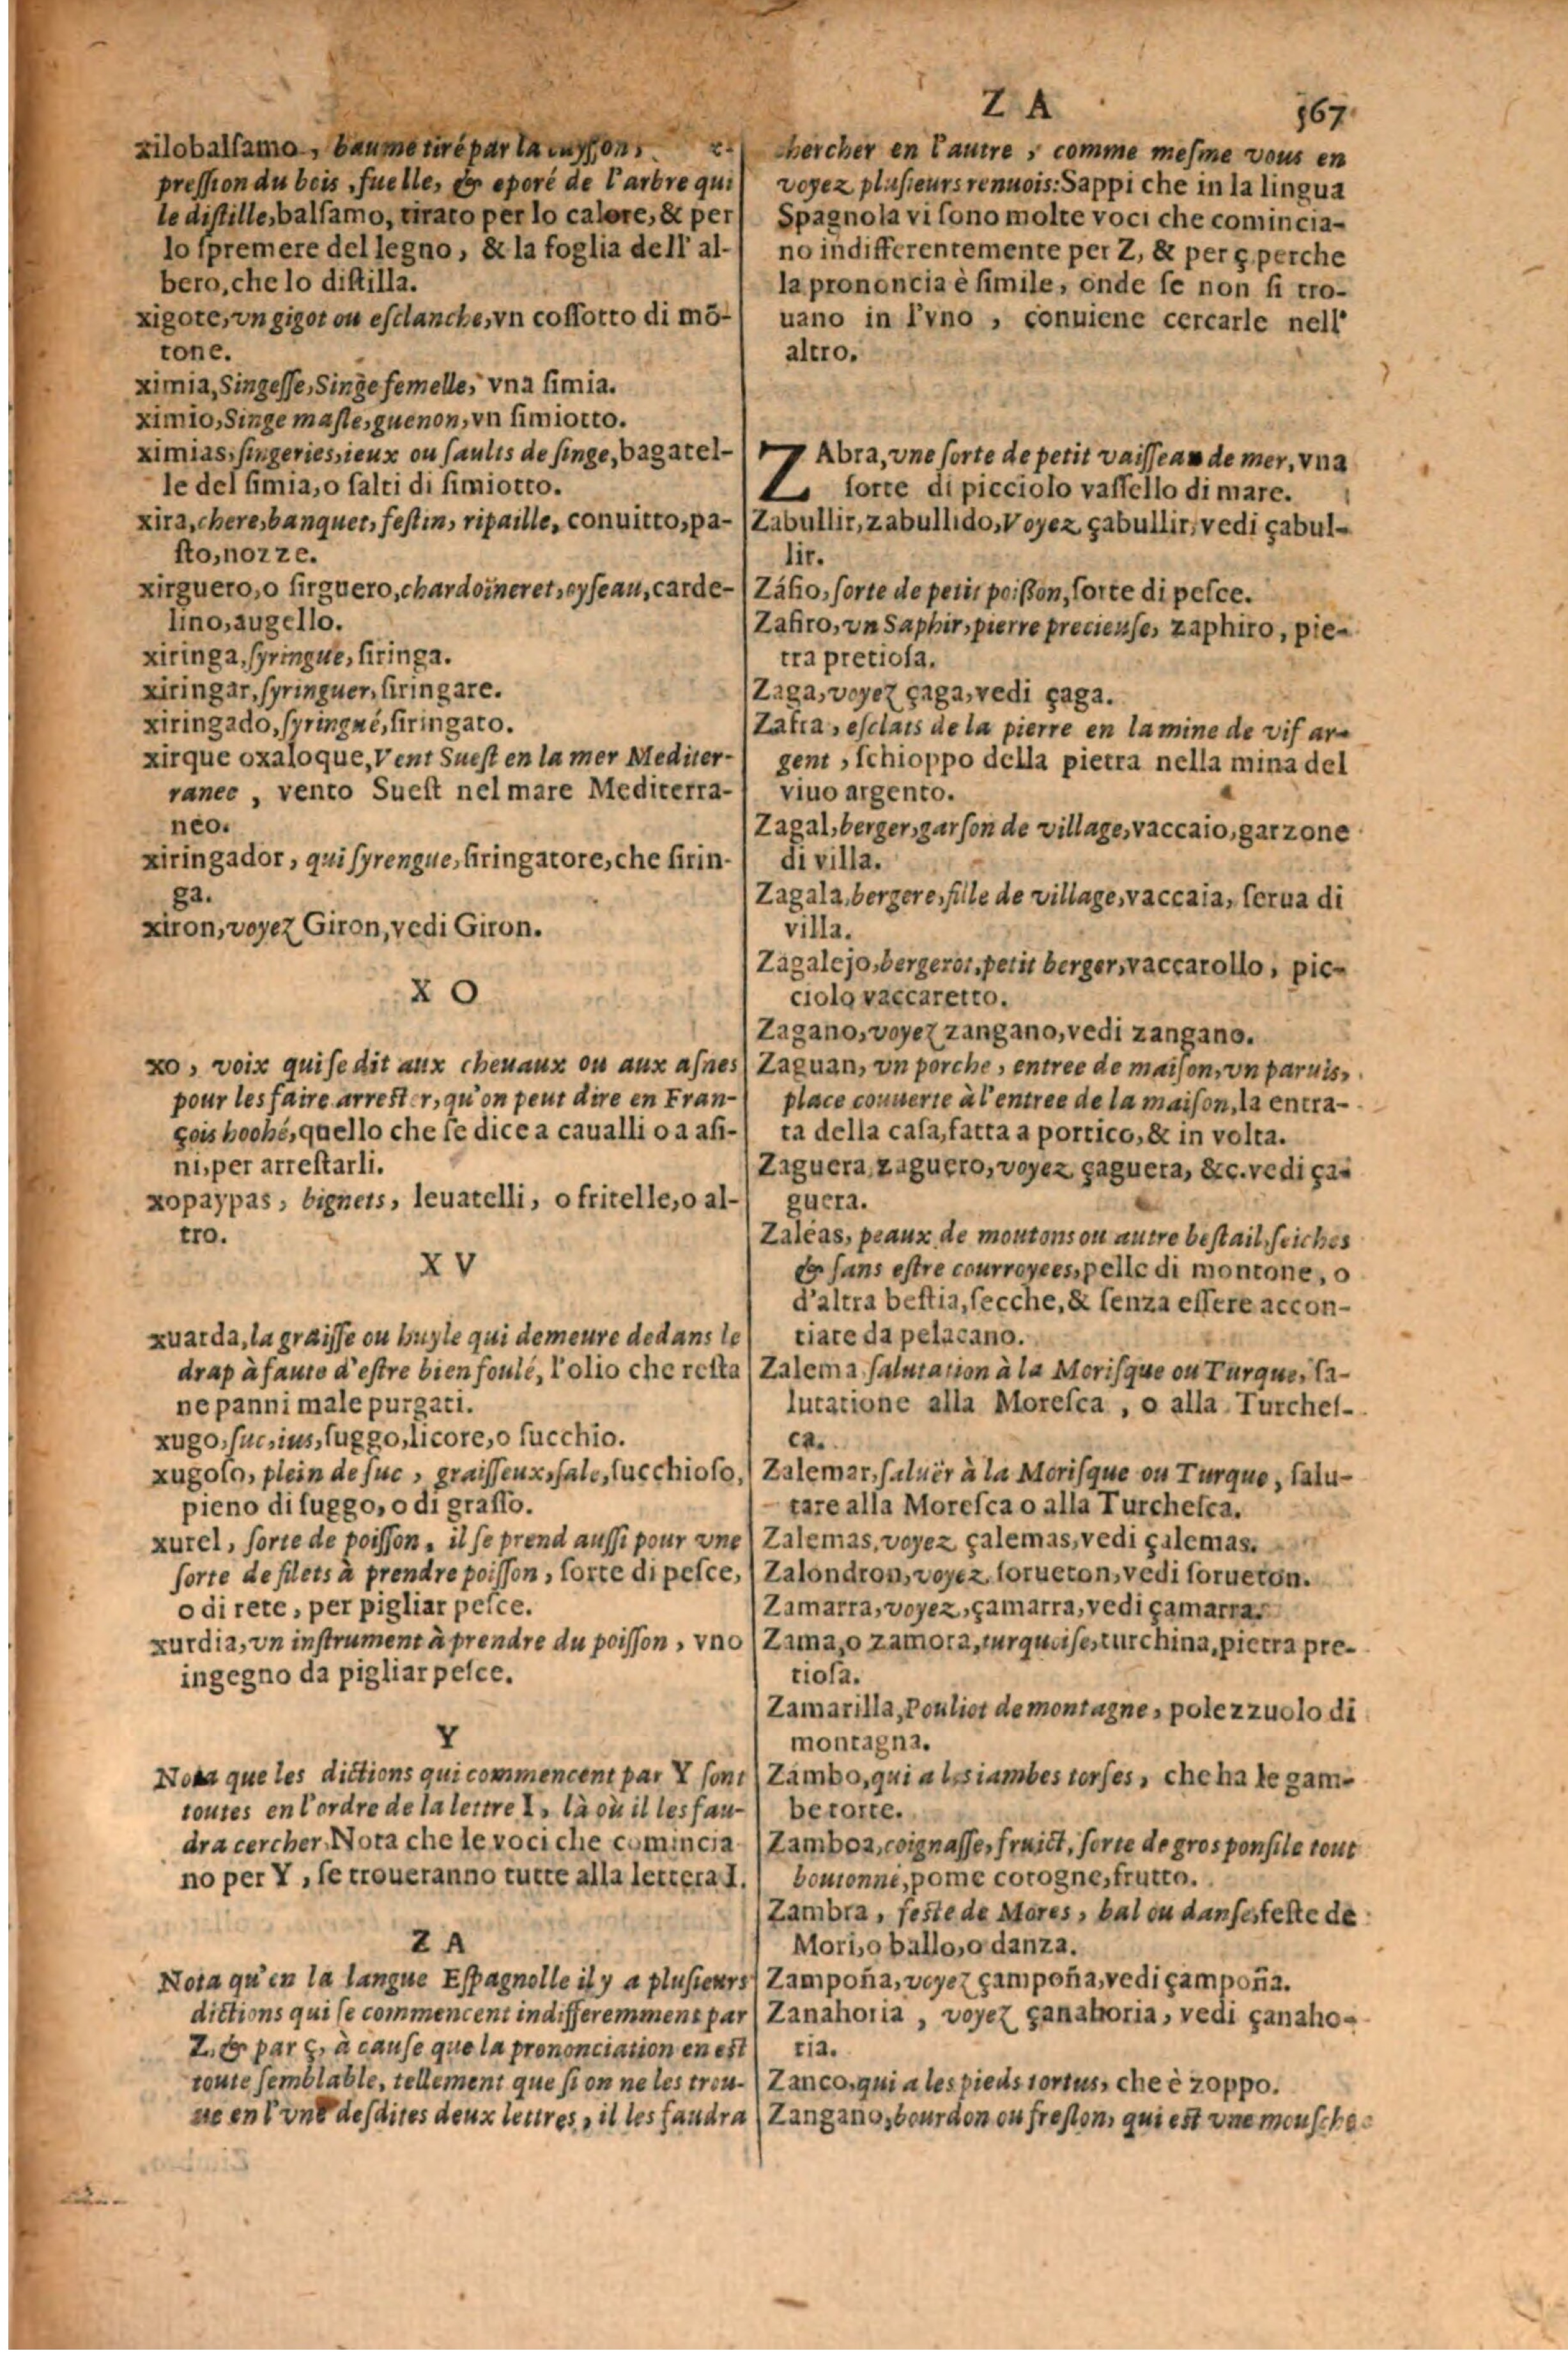 Z A
567
xilobalſamo, baume tiré par la cuyſſon,
preſſion du bois, fuelle, & eporé de l'arbre qui
le diſtille, balſamo, tirato per lo calore, & per
lo ſpremere del legno, & la foglia dell' al-
bero, che lo diſtilla.
xigote, vn gigot ou eſclanche, vn coſſotto di mõ-
tone.
ximia, Singeſſe, Singe femelle, vna ſimia.
ximio, Singe maſle, guenon, vn ſimiotto.
ximias, ſingeries, ieux ou ſaults de ſinge, bagatel-
le del ſimia, o ſalti di ſimiotto.
xira, chere, banquet, feſtin, ripaille, conuitto, pa-
ſto, nozze.
xirguero, o ſirguero, chardoineret, oyſeau, carde-
lino, augello.
xiringa, ſyringue, ſiringa.
xiringar, ſyringuer, ſiringare.
xiringado, ſyringué, ſiringato.
xirque oxaloque, Vent Sueſt en la mer Mediter-
ranee, vento Sueſt nel mare Mediterra-
neo.
xiringador, qui ſyrengue, ſiringatore, che ſirin-
ga.
xiron, voyez Giron, vedi Giron.
X O
xo, voix qui ſe dit aux cheuaux ou aux aſnes
pour les faire arreſter, qu'on peut dire en Fran-
çois hoohé, quello che ſe dice a caualli o a aſi-
ni, per arreſtarli.
xopaypas, bignets, leuatelli, o fritelle, o al-
tro.
X V
xuarda, la graiſſe ou huyle qui demeure dedans le
drap à faute d'eſtre bien foulé, l'olio che reſta
ne panni male purgati.
xugo, ſuc, ius, ſuggo, licore, o ſucchio.
xugoſo, plein de ſuc, graiſſeux, ſale, ſucchioſo,
pieno di ſuggo, o di graſſo.
xurel, ſorte de poiſſon, il ſe prend auſſi pour vne
ſorte de filets à prendre poiſſon, ſorte di peſce,
o di rete, per pigliar peſce.
xurdia, vn inſtrument à prendre du poiſſon, vno
ingegno da pigliar peſce.
Y
Nota que les dictions qui commencent par Y ſont
toutes en l'ordre de la lettre I, là où il les fau-
dra cercher. Nota che le voci che comincia
no per Y, ſe troueranno tutte alla lettera I.
Z A
Nota qu'en la langue Eſpagnolle il y a pluſieurs
dictions qui ſe commencent indifferemment par
Z, & par ç, à cauſe que la prononciation en eſt
toute ſemblable, tellement que ſi on ne les trou-
ue en l'vne deſdites deux lettres, il les faudra
chercher en l'autre, comme meſme vous en
voyez pluſieurs renuois: Sappi che in la lingua
Spagnola vi ſono molte voci che comincia-
no indifferentemente per Z, & per ç perche
la prononcia è ſimile, onde ſe non ſi tro-
uano in l'vno, conuiene cercarle nell'
altro.
ZAbra, vne ſorte de petit vaiſſeau de mer, vna
ſorte di picciolo vaſſello di mare.
Zabullir, zabullido, Voyez çabullir, vedi çabul-
lir.
Záfio, ſorte de petit poiſſon, ſorte di peſce.
Zafiro, vn Saphir, pierre precieuſe, zaphiro, pie-
tra pretioſa.
Zaga, voyez çaga, vedi çaga.
Zafra, eſclats de la pierre en la mine de vif ar-
gent, ſchioppo della pietra nella mina del
viuo argento.
Zagal, berger, garſon de village, vaccaio, garzone
di villa.
Zagala, bergere, fille de village, vaccaia, ſerua di
villa.
Zagalejo, bergerot, petit berger, vaccarollo, pic-
ciolo vaccaretto.
Zagano, voyez zangano, vedi zangano.
Zaguan, vn porche, entree de maiſon, vn paruis,
place couuerte à l'entree de la maiſon, la entra-
ta della caſa, fatta a portico, & in volta.
Zaguera, zaguero, voyez çaguera, &c. vedi ça-
guera.
Zaléas, peaux de moutons ou autre beſtail, ſeiches
& ſans eſtre courroyees, pelle di montone, o
d'altra beſtia, ſecche, & ſenza eſſere accon-
tiate da pelacano.
Zalema, ſalutation à la Moriſque ou Turque, ſa-
lutatione alla Moreſca, o alla Turcheſ-
ca.
Zalemar, ſaluër à la Moriſque ou Turque, ſalu-
tare alla Moreſca o alla Turcheſca.
Zalemas, voyez çalemas, vedi çalemas.
Zalondron, voyez ſorueton, vedi ſorueton.
Zamarra, voyez, çamarra, vedi çamarra.
Zama, o zamora, turquoiſe, turchina, pietra pre-
tioſa.
Zamarilla, Pouliot de montagne, polezzuolo di
montagna.
Zambo, qui a les iambes torſes, che ha le gam-
be torte.
Zamboa, coignaſſe, fruict, ſorte de gros ponſile tout
boutonné, pome cotogne, frutto.
Zambra, feſte de Mores, bal ou danſe, feſte de
Mori, o ballo, o danza.
Zampoña, voyez çampoña, vedi çampoña.
Zanahoria, voyez çanahoria, vedi çanaho-
ria.
Zanco, qui a les pieds tortus, che è zoppo.
Zangano, bourdon ou freſlon, qui eſt vne mouſche